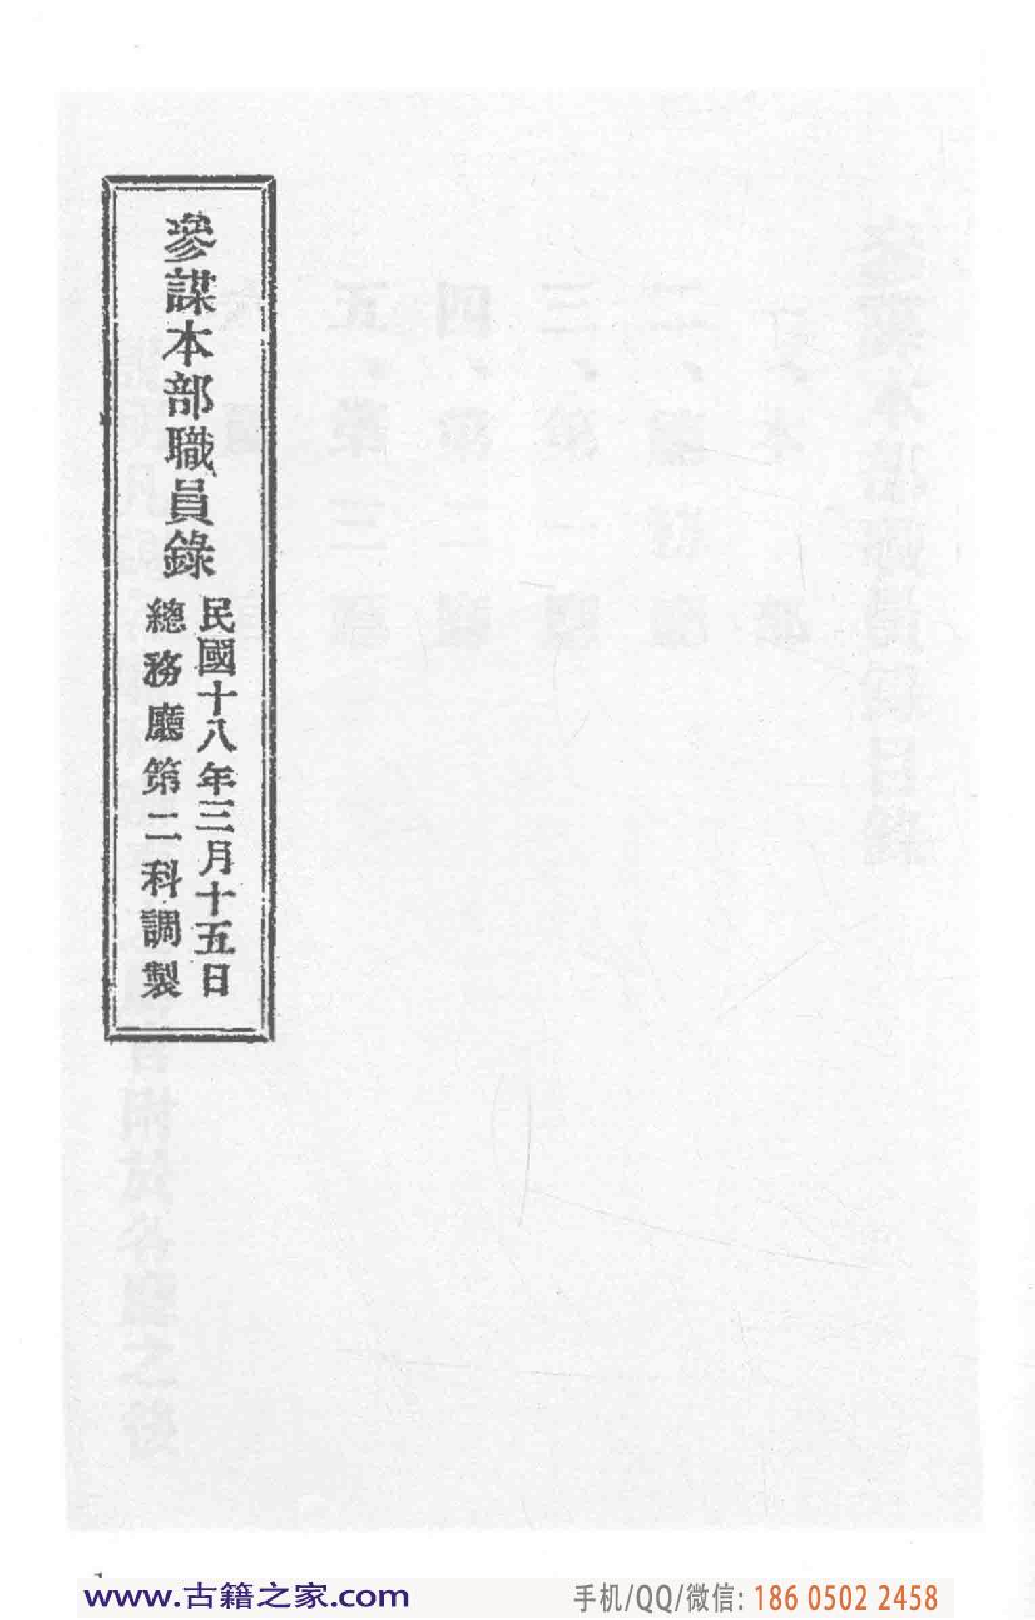 參謀本部職員錄
民國十八年三月十五日
總務廳第二科調製
www.古籍之家.com
手机/QQ/微信: 186 0502 2458